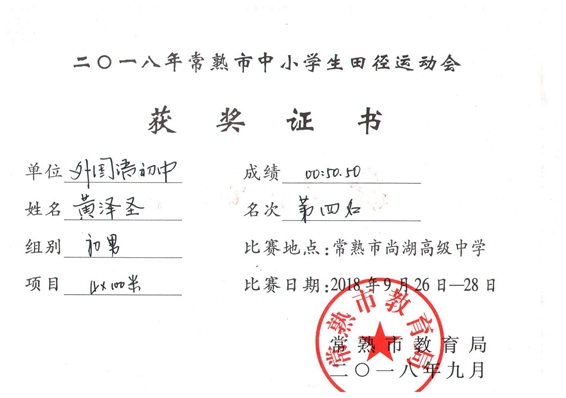 二〇一八年常熟市中小学生田径运动会
获奖证书
单位 外国语初中 成绩 00:50.50
姓名 黄泽圣 名次 第四名
组别 初男 比赛地点:常熟市尚湖高级中学
项目 4×100米 比赛日期:2018年9月26日—28日
常熟市教育局
常熟市教育局
二〇一八年九月